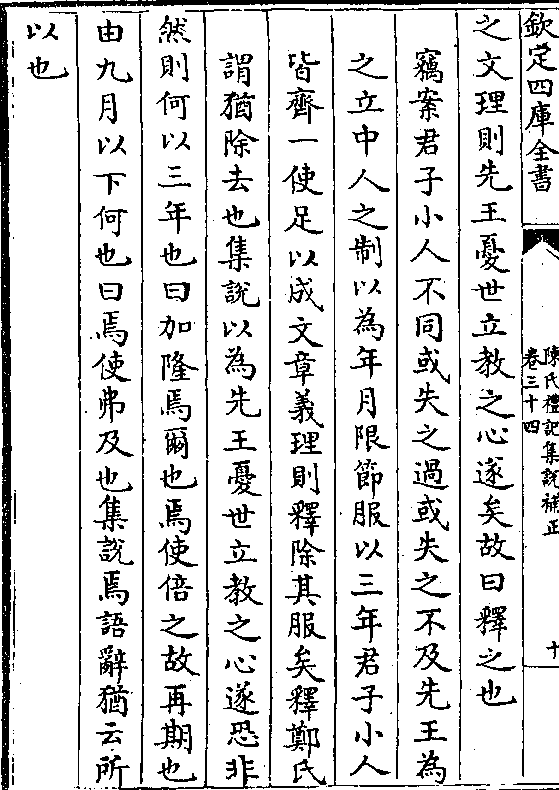 欽定四庫全書
陳氏禮記集說補正
卷三十四
十
之文理則先王憂世立教之心遂矣故曰釋之也
竊案君子小人不同或失之過或失之不及先王為
之立中人之制以為年月限節服以三年君子小人
皆齊一使足以成文章義理則釋除其服矣釋鄭氏
謂猶除去也集說以為先王憂世立教之心遂恐非
然則何以三年也曰加隆焉爾也焉使倍之故再期也
由九月以下何也曰焉使弗及也集說焉語辭猶云所
以也